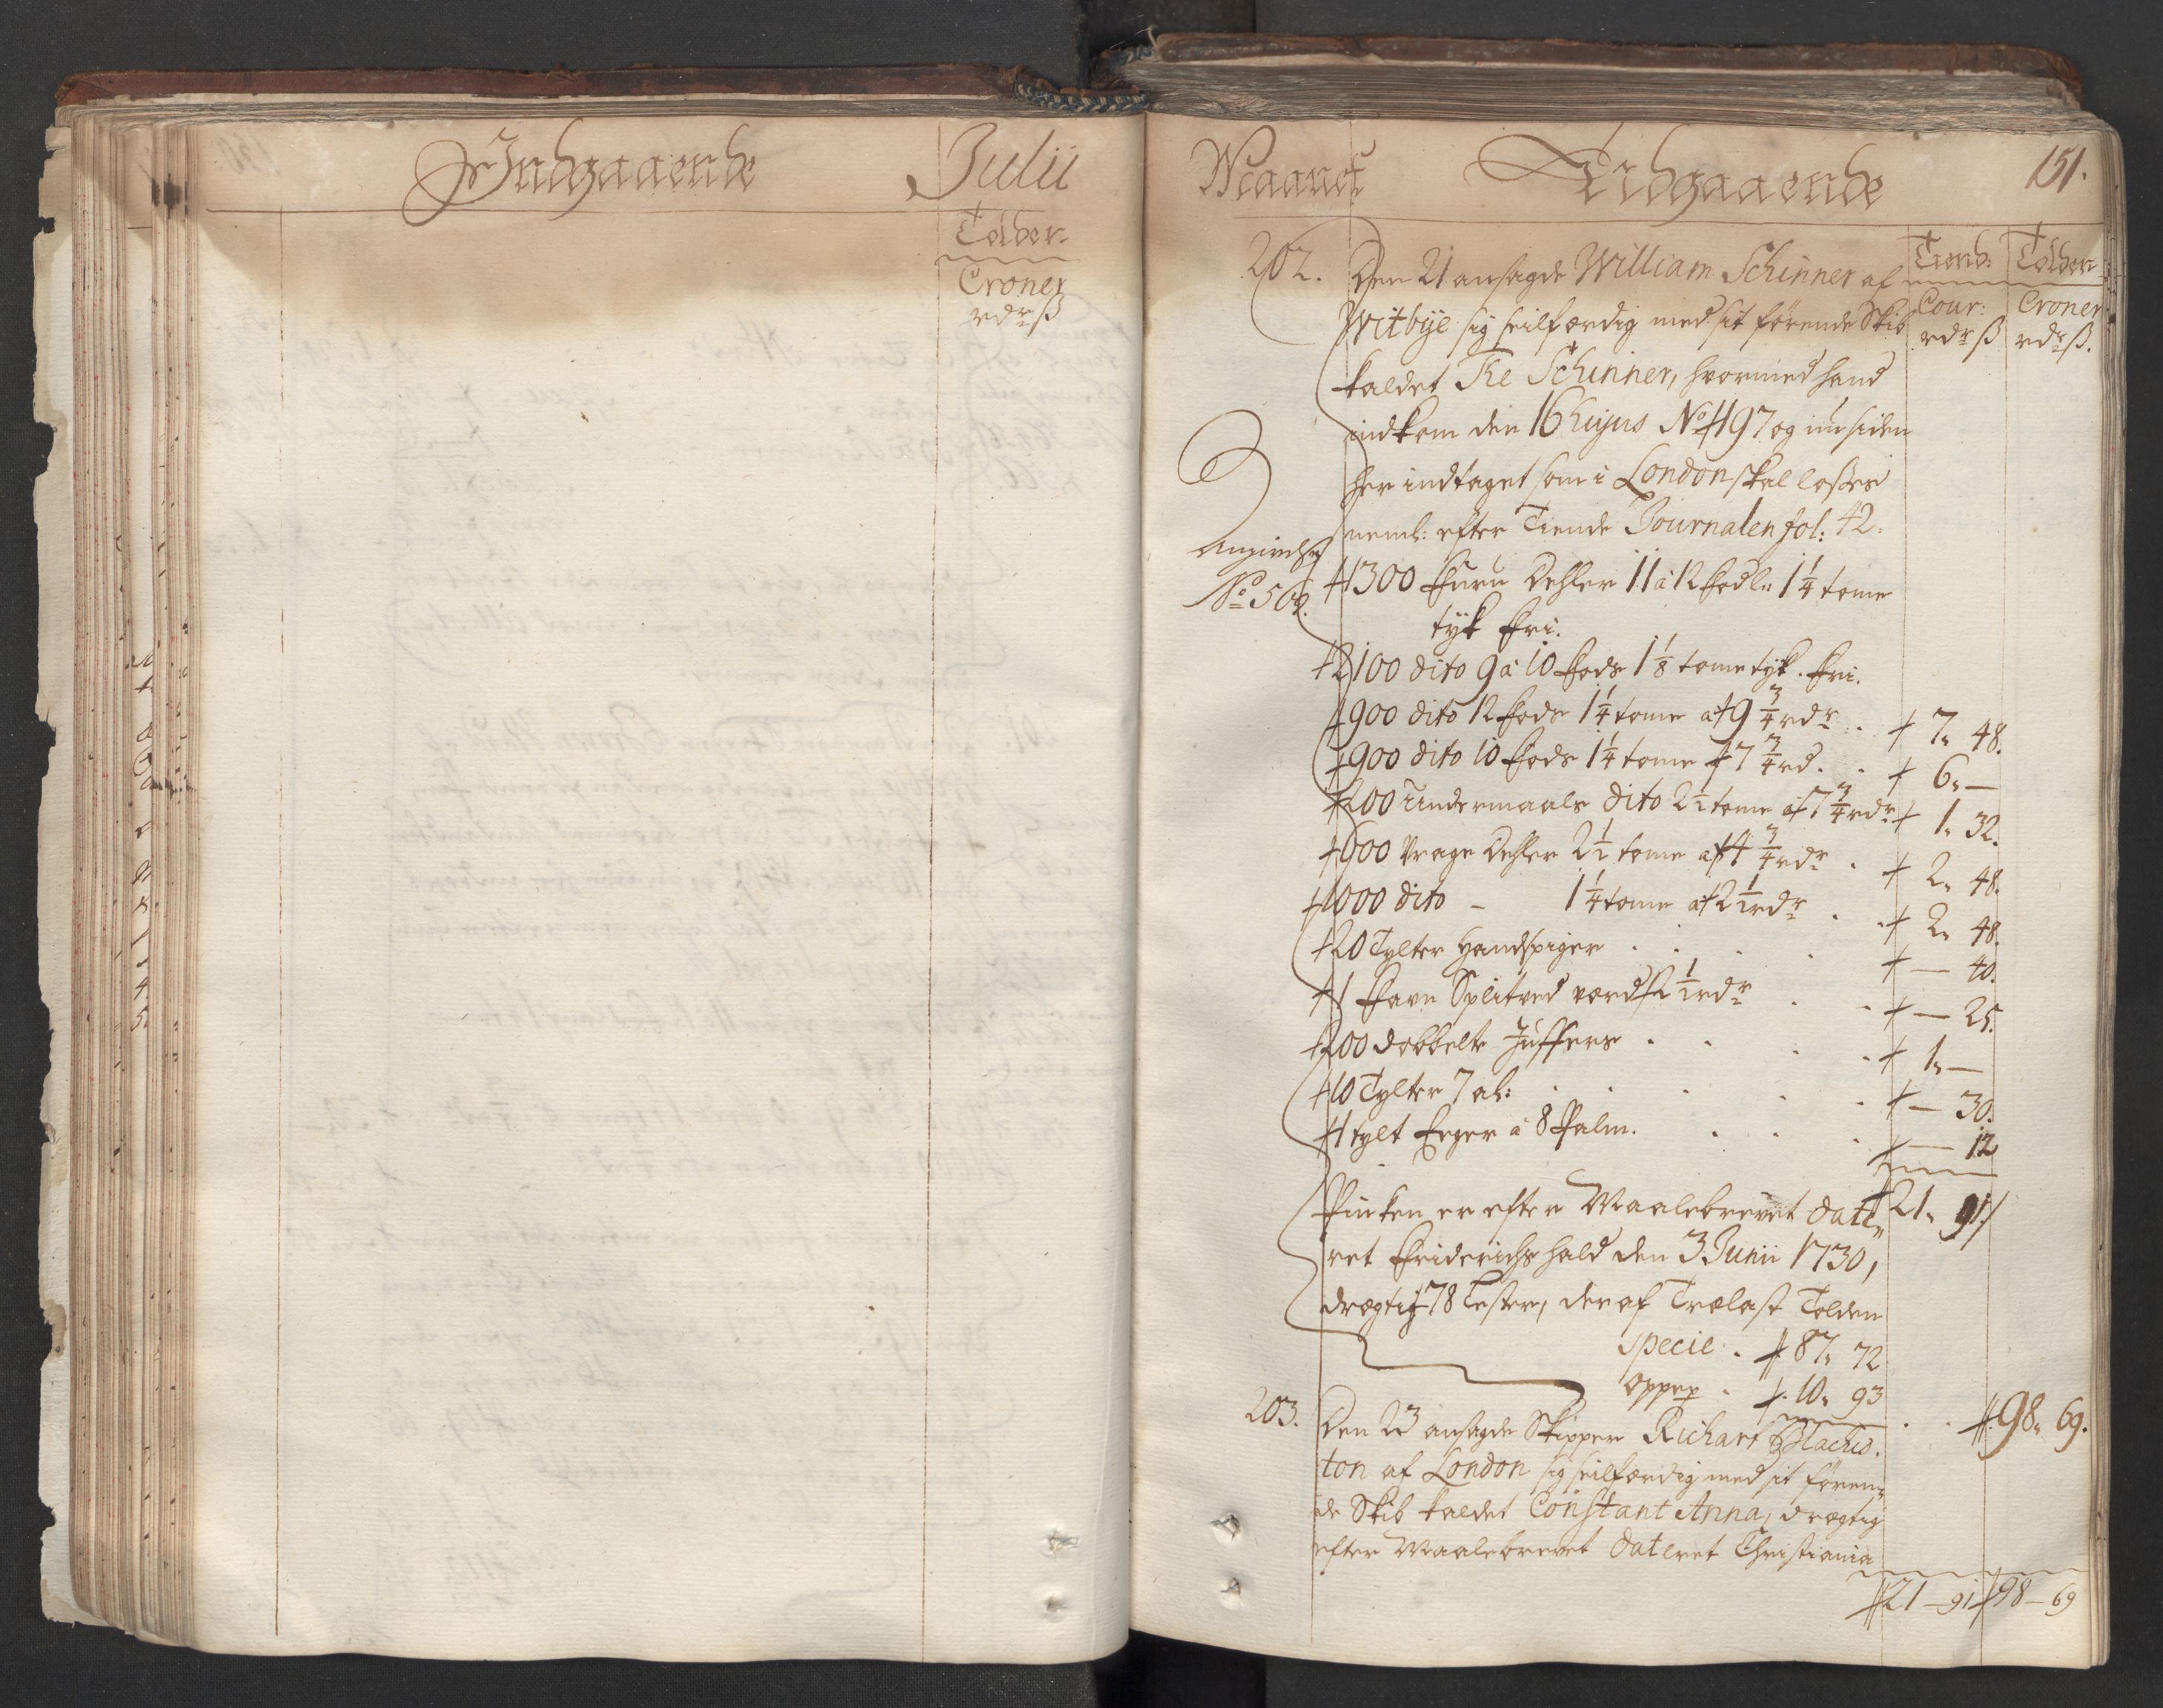 Indgaaende
Julii
Tolder
Croner
rdr ß
Maanet
Udgaaende
151.
Tiend: Tolder
Cour: Croner
rdr ß rdr ß.
202. Den 21 ansagde William Schinner af
Witbye sig seilfærdig med sit förende Skib
kaldet The Schinner, hvormed hand
indkom den 16 hujus No 497 og nu siden
her indtaget som i London skal losses
neml: efter Tiende Journalen fol: 42.
Angivelse
No 502.
1300 Furu Dehler 11 à 12 Fod l: 1 1/4 tome
tyk Fri.
2100 dito 9 à 10 Fods 1 1/8 tome tyk. Fri.
900 dito 12 Fods 1 1/4 tome af 9 3/4 rdr . 7" 48.
900 dito 10 Fods 1 1/4 tome 7 3/4 rd . . 6" —
200 Undermaals dito 2 1/2 tome af 7 3/4 rdr 1" 32.
600 Vrage Dehler 2 1/2 tome af 4 3/4 rdr . 2" 48.
1000 dito – 1 1/4 tome af 2 1/2 rdr . . 2" 48.
20 Tylter Handspiger . . . . — 40.
1 Favn Splitved værd 2 1/2 rdr . . — 25.
200 dobbelte Juffers . . . . 1" —
10 Tylter 7 al: . . . . . — 30.
1 tylt Eeger à 8 Palm. . . . — 12
Pinken er efter Maalebrevet date" 21" 91
ret Friderichshald den 3 Junii 1730,
drægtig 78 Lester, deraf Trælast Tolden
specie . 87" 72
oppep . 10" 93
. . 98" 69.
203. Den 23 ansagde Skipper Richart Blachis.
ton af London sig seilfærdig med sit fören„
de Skib kaldet Constant Anna, drægtig
efter Maalebrevet dateret Christiania
21 — 91 98 — 69